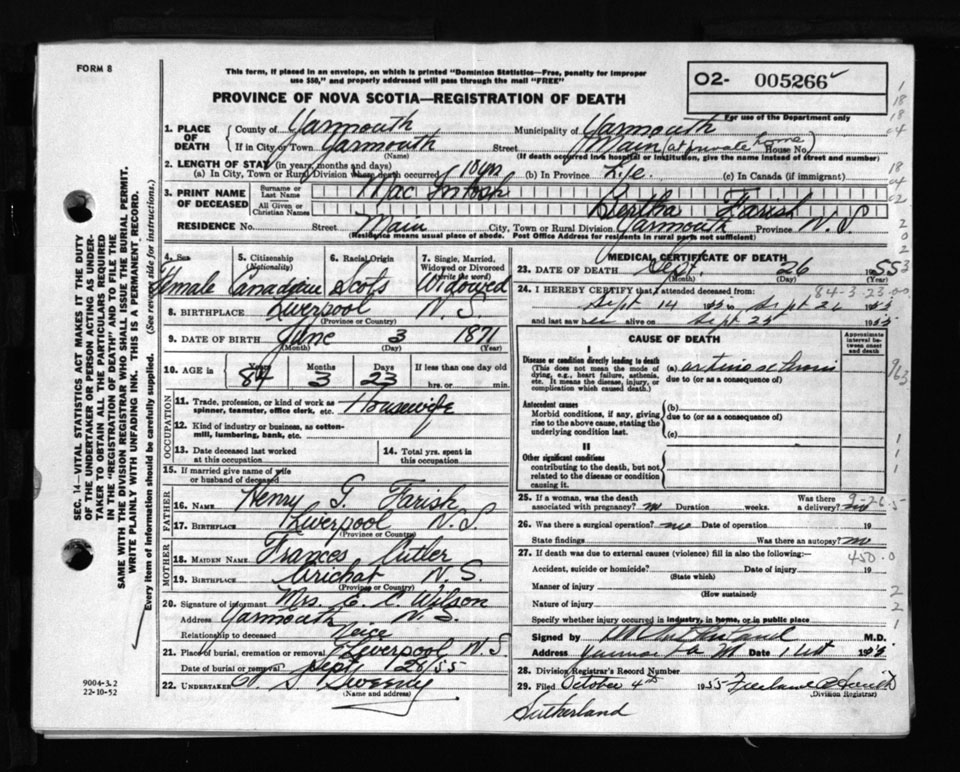 FORM 8
This form, if placed in an envelope, on which is printed "Dominion Statistics—Free, penalty for improper
use $50," and properly addressed will pass through the mail "FREE"
PROVINCE OF NOVA SCOTIA—REGISTRATION OF DEATH
O2- 005266
For use of the Department only
1. PLACE OF DEATH County of Yarmouth Municipality of Yarmouth
If in City or Town Yarmouth Street Main (at private home House No.)
(Name) (If death occurred in a hospital or institution, give the name instead of street and number)
2. LENGTH OF STAY (in years, months and days)
(a) In City, Town or Rural Division where death occurred 10 yrs (b) In Province Life. (c) In Canada (if immigrant)
3. PRINT NAME OF DECEASED Surname or Last Name Mac Intosh
All Given or Christian Names Bertha Farish
RESIDENCE No. Street Main City, Town or Rural Division Yarmouth Province N.S
(Residence means usual place of abode. Post Office Address for residents in rural parts not sufficient)
4. Sex 5. Citizenship (Nationality) 6. Racial Origin 7. Single, Married, Widowed or Divorced (write the word)
Female Canadian Scots Widowed
8. BIRTHPLACE Liverpool N.S.
(Province or Country)
9. DATE OF BIRTH June 3 1871
(Month) (Day) (Year)
10. AGE in Years Months Days If less than one day
84 3 23 hrs. or min.
OCCUPATION
11. Trade, profession, or kind of work as Housewife
spinner, teamster, office clerk, etc.
12. Kind of industry or business, as cotton-
mill, lumbering, bank, etc.
13. Date deceased last worked at this occupation 14. Total yrs. spent in this occupation
15. If married give name of wife
or husband of deceased
FATHER
16. NAME Henry G. Farish
17. BIRTHPLACE Liverpool N.S.
(Province or Country)
MOTHER
18. MAIDEN NAME Frances Cutler
19. BIRTHPLACE Arichat N.S.
(Province or Country)
20. Signature of informant Mrs. E. C. Wilson
Address Yarmouth N.S.
Relationship to deceased Neice
21. Place of burial, cremation or removal Liverpool N.S.
Date of burial or removal Sept 28/55
22. UNDERTAKER Sweeny
(Name and address)
MEDICAL CERTIFICATE OF DEATH
23. DATE OF DEATH Sept. 26 1955
(Month) (Day) (Year)
24. I HEREBY CERTIFY that I attended deceased from: 84-3-23.00
Sept 14 1955 Sept 26 1955
and last saw her alive on Sept 25 1955
CAUSE OF DEATH
Approximate interval between onset and death
I
Disease or condition directly leading to death (a)
(This does not mean the mode of
dying, e.g., heart failure, asthenia,
etc. It means the disease, injury, or
complication which caused death).
due to (or as a consequence of)
Antecedent causes
Morbid conditions, if any, giving
rise to the above cause, stating the
underlying condition last.
(b)
due to (or as a consequence of)
(c)
II
Other significant conditions
contributing to the death, but not
related to the disease or
condition causing it
25. If a woman, was the death Was there 9-26-5
associated with pregnancy? no Duration weeks. a delivery? no
26. Was there a surgical operation? no Date of operation 19
State findings Was there an autopsy? no
27. If death was due to external causes (violence) fill in also the following:— 450.0
Accident, suicide or homicide? Date of injury 19
(State which)
Manner of injury
(How sustained)
Nature of injury
Specify whether injury occurred in industry, in home, or in public place
Signed by M.D.
Address Date 1955
28. Division Registrar's Record Number
29. Filed October 4th 1955
(Division Registrar)
Sutherland
SEC. 14—VITAL STATISTICS ACT MAKES IT THE DUTY
OF THE UNDERTAKER OR PERSON ACTING AS UNDER-
TAKER TO OBTAIN ALL THE PARTICULARS REQUIRED
IN THE "REGISTRATION OF DEATH" AND TO FILE THE
SAME WITH THE DIVISION REGISTRAR WHO SHALL ISSUE THE BURIAL PERMIT.
WRITE PLAINLY WITH UNFADING INK. THIS IS A PERMANENT RECORD.
Every item of information should be carefully supplied. (See reverse side for instructions.)
9004-3.2
22-10-52